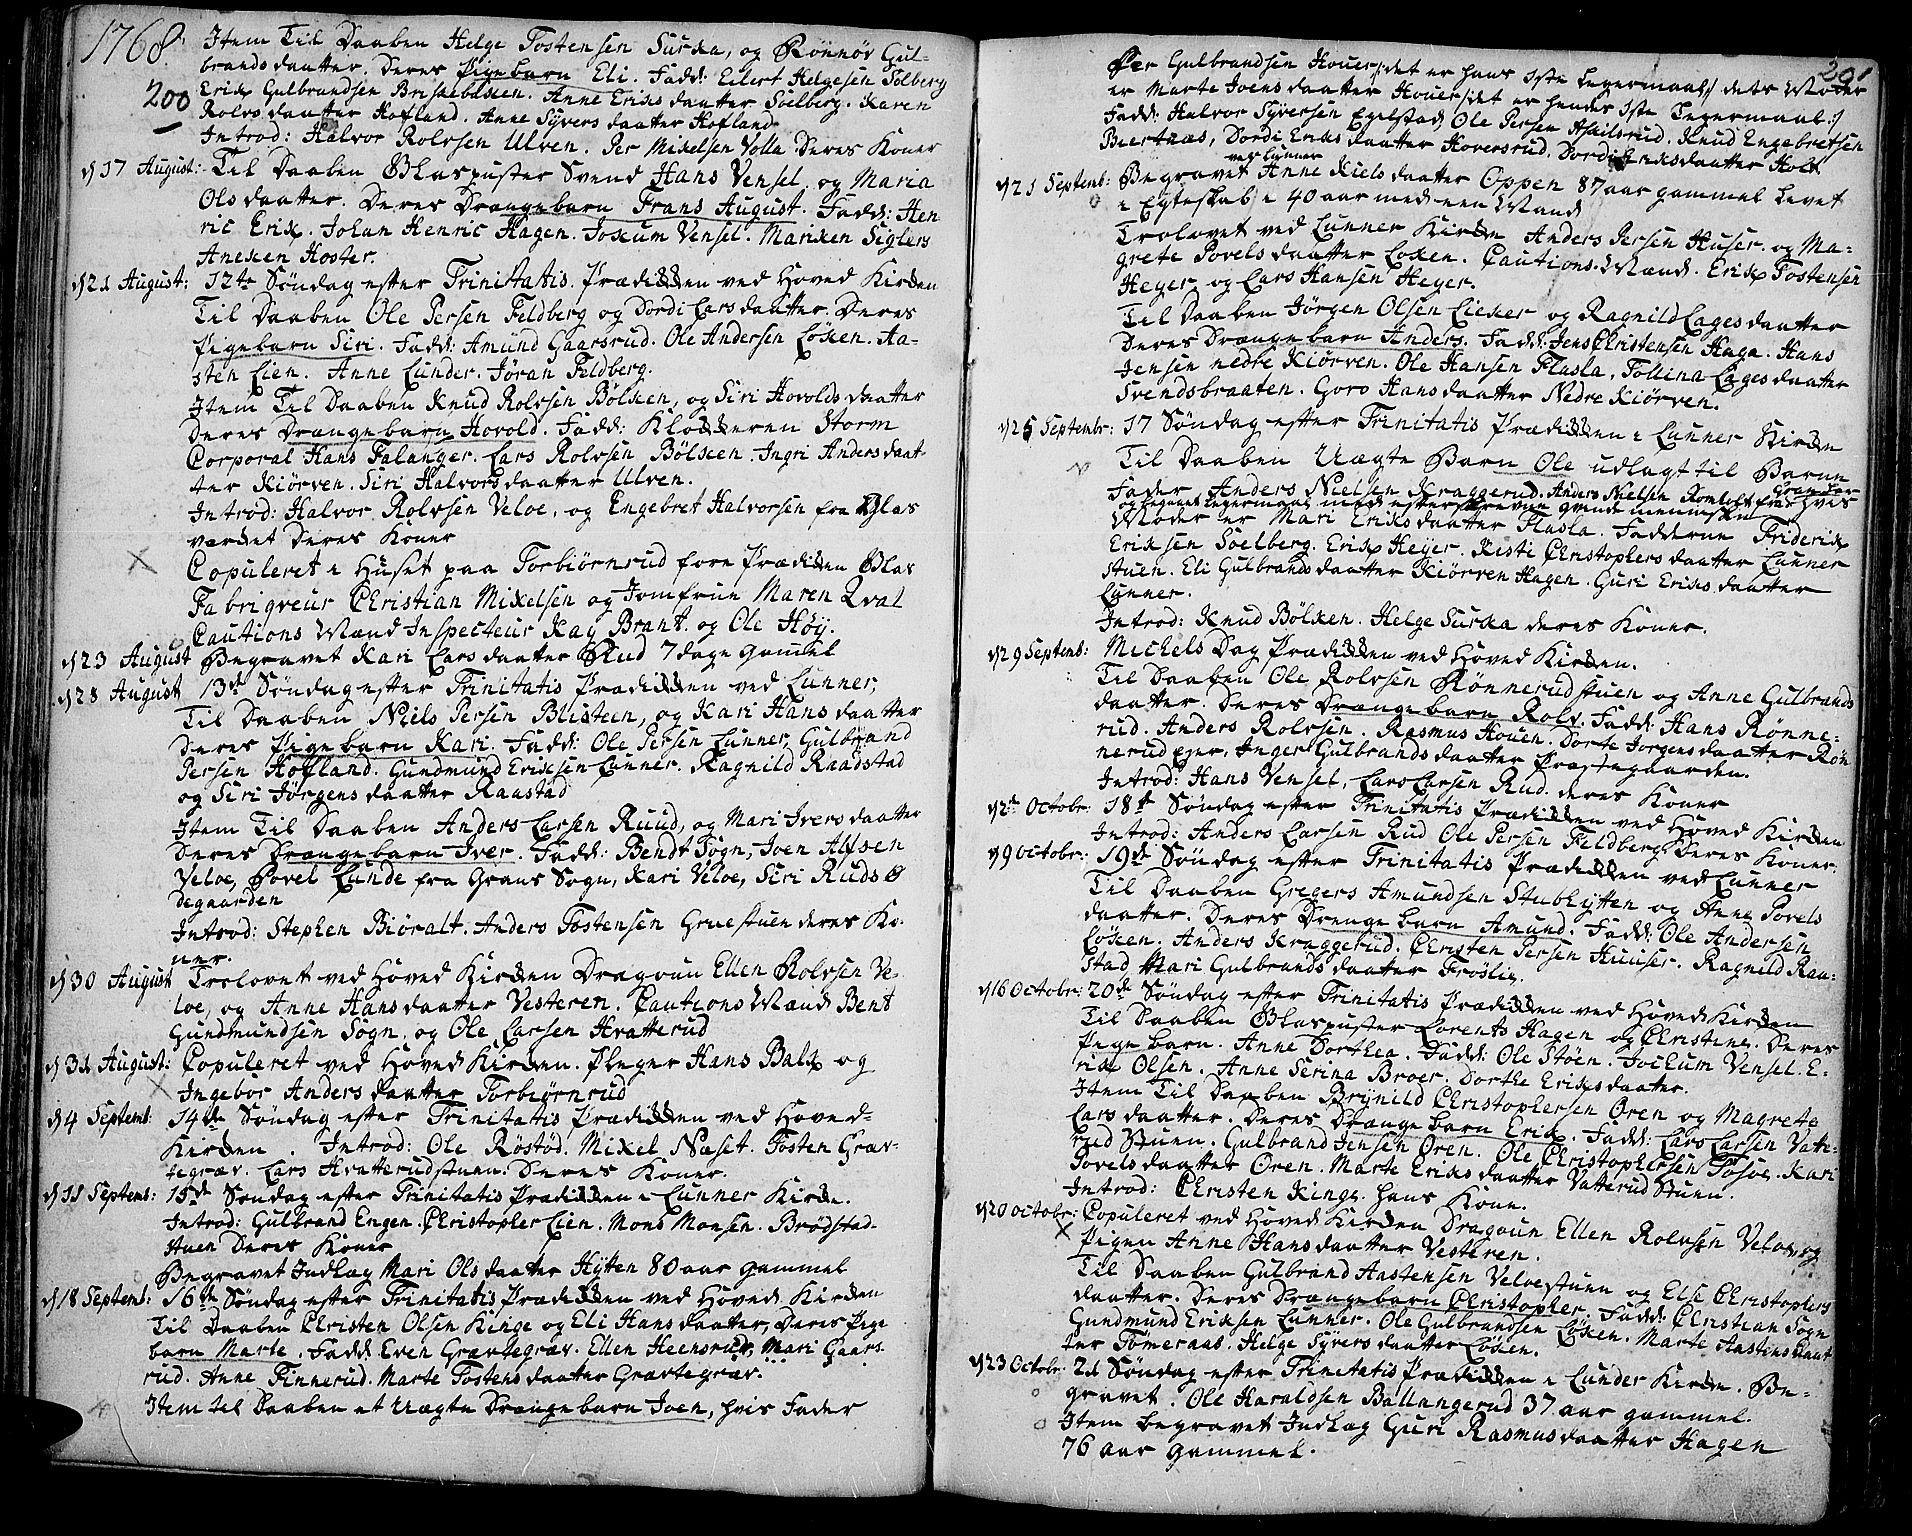 1768.
200
Item Til Daaben Helge Tostensen Surka, og Rønnøv Gul-
brands daatter. Deres Pigebarn Eli. Fadd: Eilert Helgesen Solberg
Erik Gulbrandsen Briskebacken. Anne Eriks daatter Soelberg. Karen
Rolvs daatter Hofland. Anne Syvers daatter Hofland
Introd: Halvor Rolvsen Ulven. Per Mikelsen Volla Deres Koner
d 17 August: Til Daaben Glaspuster Svend Hans Vensel, og Maria
Ols daatter. Deres Drængebarn Frans August. Fadd: Hen
ric Erik. Johan Henric Hagen. Jokum Vensel. Mariken Siglers
Aneken Hoster.
d 21 August: 12te Søndag efter Trinitatis. Prædicken ved Hoved Kircken
Til Daaben Ole Persen Feldberg og Dordi Lars daatter. Deres
Pigebarn Siri. Fadd: Amund Gaarsrud. Ole Andersen Løken. Aa-
sten Lien. Anne Lunder. Jøran Feldberg.
Item Til Daaben Knud Rolvsen Bølken, og Siri Hovolds daatter
Deres Drængebarn Hovold. Fadd: Klockeren Storm
Corporal Hans Falanger. Lars Rolvsen Bølken. Ingri Anders daat-
ter Kiørven. Siri Halvors daatter Ulven.
Introd: Halvor Rolvsen Veloe, og Engebret Halvorsen fra Glas
værcket Deres Koner
Copuleret i Huset paa Torbiørnrud fore Prædicken Glas
Fabriqveur Christian Mikelsen og Jomfrue Maren Qval
Cautions Mænd Inspecteur Kay Brant. og Ole Høy.
d 23 August Begravet Kari Lars daatter Rud 7 dage Gammel
d 28 August 13de Søndag efter Trinitatis Prædicken ved Lunner,
Til Daaben Niels Persen Blisteen, og Kari Hans daatter
Deres Pigebarn Kari. Fadd: Ole Persen Lunner, Gulbrand
Persen Hofland. Gundmund Eriksen Lunner. Ragnild Raadstad
og Siri Jørgens daatter Raastad
Item Til Daaben Anders Larsen Ruud, og Mari Ivers daatter
Deres Drængebarn Iver. Fadd: Bendt Sogn, Joen Alfsen
Veloe, Povel Lunde fra Grans Sogn, Kari Veloe, Siri Ruds Ø
degaarden
Introd: Stephen Biøralt. Anders Tostensen Gruestuen deres Ko-
ner.
d 30 August Trolovet ved Hoved Kircken Dragoun Ellen Rolvsen Ve-
loe, og Anne Hans daatter Vesteren. Cautions Mænd Bent
Gundmundsen Sogn, og Ole Larsen Hvatterud
d 31 August: Copuleret ved Hoved Kircken. Pleger Hans Balk og
Ingebor Anders daatter Torbiørnrud
d 4 Septemb: 14de Søndag efter Trinitatis Prædicken ved Hoved-
Kircken. Introd: Ole Røstød. Mikel Næset. Tosten Græv-
tegræv. Lars Hvatterudstuen. Deres Koner.
d 11 Septemb: 15de Søndag efter Trinitatis Prædicken i Lunner Kircke.
Introd: Gulbrand Engen. Christopher Lien. Mons Monsen. Brødstad-
stuen Deres Koner
Begravet Indlag Mari Ols daatter Hytten 80 aar gammel
d 18 Septemb: 16de Søndag efter Trinitatis Prædicken ved Hoved Kircken
Til Daaben Christen Olsen Kinge og Eli Hans daatter, Deres Pige
barn Marte. Fadd: Even Grævtegræv. Ellen Heensrud, Mari Gaars
rud. Anne Finnerud. Marte Tostens daatter Grævtegræv.
Item til Daaben et Uægte Drængebarn Joen, hvis Fader
201
Per Gulbrandsen Houer /:det er hans 1ste Legermaal:/ dets Moder
er Marte Joens daatter Houer /:det er hendes 1ste Legermaal:/
Fadd: Halvor Syversen Egelstad, Ole Persen Askilsrud. Knud Engebretsen
Beertnæs, Dordi Eriks daatter Hoversrud. Dordi Eriksdaatter Holt
ved Lunner
d 21 Septemb: Begravet Anne Kiels daatter Oppen 87 aar gammel levet
i Egteskab i 40 aar med een Mand
Trolovet ved Lunner Kircke Anders Persen Huser. og Ma-
grete Povels daatter Loken. Cautions Mænd. Erik Tostensen
Heyer, og Lars Hansen Heyer.
Til Daaben Jørgen Olsen Lieker og Ragnild Lages daatter
Deres Drængebarn Anders. Fadd: Jens Christensen Haga. Hans
Jensen nedre Kiørven. Ole Hansen Flasla, Tollina Lages daatter
Svendsbraaten. Goro Hans daatter Nedre Kiørven.
d 25 Septembr: 17 Søndag efter Trinitatis Prædicken i Lunner Kircke
Til Daaben Uægte Barn Ole udlagt til Barne
Fader Anders Nielsen Kraggerud. Anders Nielsen
Moder er Mari Eriks daatter Flasla. Fadderne Friderik
Eriksen Soelberg. Erik Heyer. Kisti Christophers daatter Lunner
stuen. Eli Gulbrands daatter Kiørven Hagen. Guri Eriks daatter
Lunner.
Introd: Knud Bølken. Helge Surka deres Koner.
d 29 Septemb: Michels Dag Prædicken ved Hoved Kircken.
Til Daaben Ole Rolvsen Rønnerudstuen og Anne Gulbrands
daatter. Deres Drængebarn Rolv. Fadd: Hans Rønne-
rud. Anders Rolvsen. Rasmus Houen. Dorte Jorgens daatter Røn
nerud ejer, Inger Gulbrands daatter Præstegaarden.
Introd: Hans Vensel, Lars Larsen Rud. deres Koner
d 2de Octobr: 18de Søndag efter Trinitatis Prædicken ved Hoved Kircken
Introd: Anders Larsen Rud Ole Persen Feldberg. Deres Koner.
d 9 Octobr: 19de Søndag efter Trinitatis Prædicken ved Lunner
Til Daaben Gregers Amundsen Stubhytten og Anne Povels
daatter. Deres Drengebarn Amund. Fadd: Ole Andersen
Løken. Anders Kraggerud. Christen Persen Huuser. Ragnild Raa-
stad Mari Gulbrands daatter Frøslie.
d 16 Octobr: 20de Søndag efter Trinitatis Prædicken ved Hoved Kircken
Til Daaben Glaspuster Lorents Hagen og Christine. Deres
Pigebarn. Anne Dorthea. Fadd: Ole Støen. Jochum Vensel. E-
rik Olsen. Anne Serina Broer. Dorthe Eriksdaatter.
Item Til Daaben Brynild Christophersen Oren og Magrete
Lars daatter. Deres Drængebarn Erik. Fadd: Lars Larsen Vatte-
rud Stuen. Gulbrand Jensen Oren. Ole Christophersen Tosoe. Kari
Povels daatter Oren. Marte Eriks daatter Vatterud Stuen.
Introd: Christen Kinge. hans Kone.
d 20 Octobr: Copuleret ved Hoved Kircken Dragoun Ellen Rolvsen Veloe, og
Pigen Anne Hans daatter Vesteren.
Til Daaben Gulbrand Aastensen Veloestuen og Else Christophers
daatter. Deres Drængebarn Christopher. Fadd: Christian Sogn
Gundmund Eriksen Lunner. Ole Gulbrandsen Løken. Marte Aastens daat
ter Tømeraas. Helge Syvers daatter Løken.
d 23 Octobr: 21 Søndag efter Trinitatis Prædicken i Lunder Kircke. Be-
gravet. Ole Haraldsen Ballangerud 37 aar gammel.
Item begravet Indlag Guri Rasmusdaatter Hagen
76 aar gammel.